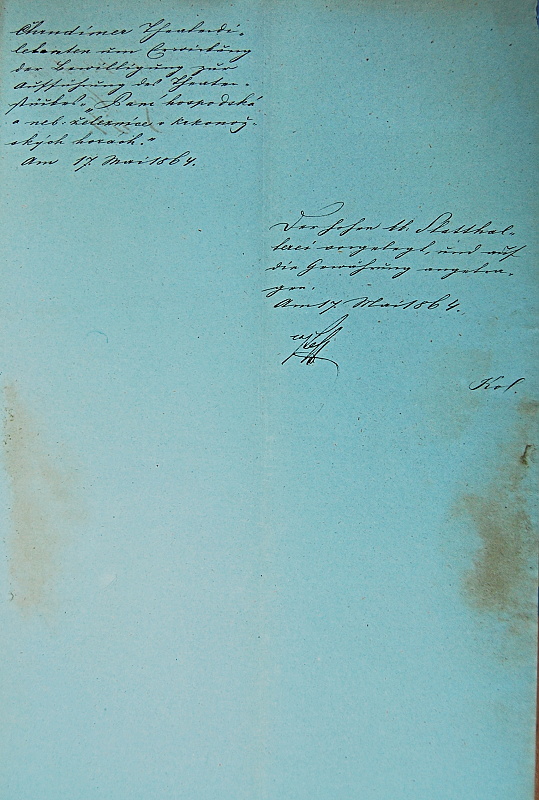 Chrudimer Theaterdi-
letanten um Erwirkung
der Bewilligung zur
Aufführung des Theater-
stückes „Paní hospodská
a neb: železnice v krkonoš-
ských horách."
Am 17. Mai 1864.
Der hohen kk. Statthal-
terei vorgelegt, und auf
die Gewährung angetra-
gen.
Am 17 Mai 1864.
Kol.